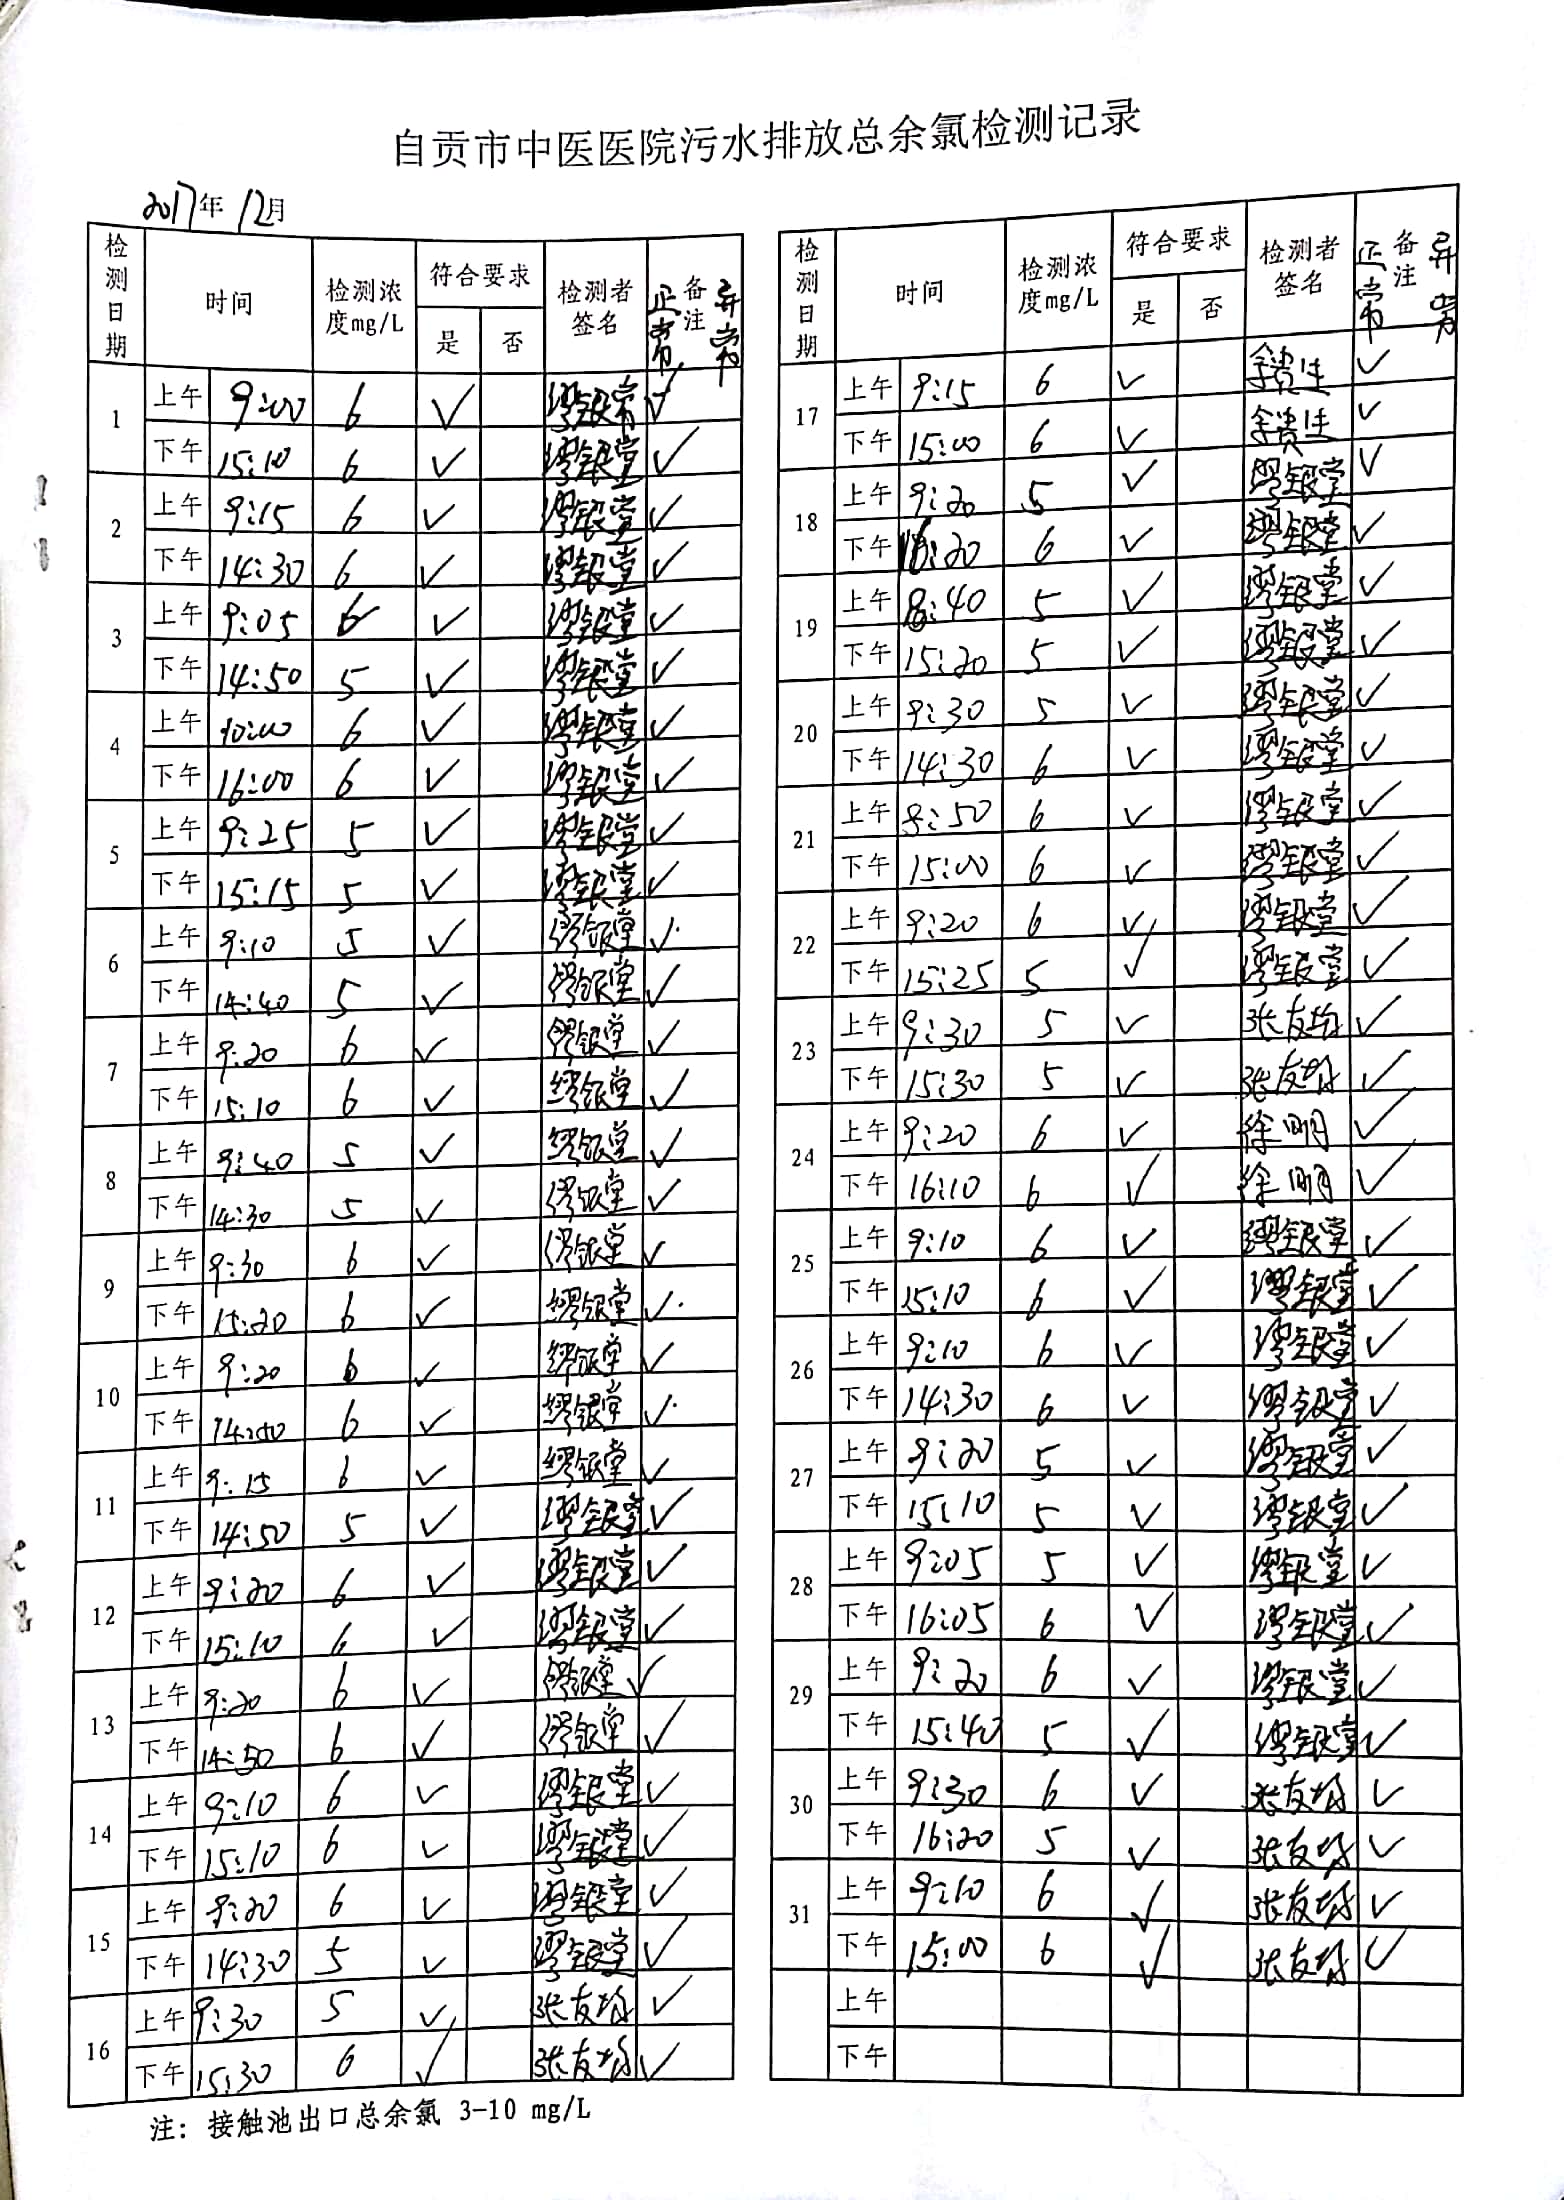 自贡市中医医院污水排放总余氯检测记录
2017年 12月
检测日期 时间 检测浓度mg/L 符合要求 是 否 检测者签名 备注 正常 异常
1 上午 9:00 6 ✓ 缪银常 ✓
下午 15:10 6 ✓ 缪银堂 ✓
2 上午 9:15 6 ✓ 缪银堂 ✓
下午 14:30 6 ✓ 缪银堂 ✓
3 上午 9:05 6 ✓ 缪银堂 ✓
下午 14:50 5 ✓ 缪银堂 ✓
4 上午 10:00 6 ✓ 缪银堂 ✓
下午 16:00 6 ✓ 缪银堂 ✓
5 上午 9:25 5 ✓ 缪银堂 ✓
下午 15:15 5 ✓ 缪银堂 ✓
6 上午 9:10 5 ✓ 缪银堂 ✓
下午 14:40 5 ✓ 缪银堂 ✓
7 上午 9:20 6 ✓ 缪银堂 ✓
下午 15:10 6 ✓ 缪银堂 ✓
8 上午 9:40 5 ✓ 缪银堂 ✓
下午 14:30 5 ✓ 缪银堂 ✓
9 上午 9:30 6 ✓ 缪银堂 ✓
下午 15:20 6 ✓ 缪银堂 ✓
10 上午 9:20 6 ✓ 缪银堂 ✓
下午 6 ✓ 缪银堂 ✓
11 上午 9:15 6 ✓ 缪银堂 ✓
下午 14:50 5 ✓ 缪银堂 ✓
12 上午 9:20 6 ✓ 缪银堂 ✓
下午 15:10 6 ✓ 缪银堂 ✓
13 上午 9:20 6 ✓ 缪银堂 ✓
下午 14:50 6 ✓ 缪银堂 ✓
14 上午 9:10 6 ✓ 缪银堂 ✓
下午 15:10 6 ✓ 缪银堂 ✓
15 上午 9:20 6 ✓ 缪银堂 ✓
下午 14:30 5 ✓ 缪银堂 ✓
16 上午 9:30 5 ✓ 张友均 ✓
下午 15:30 6 ✓ 张友均 ✓
注: 接触池出口总余氯 3-10 mg/L
检测日期 时间 检测浓度mg/L 符合要求 是 否 检测者签名 备注 正常 异常
17 上午 9:15 6 ✓ 余贵生 ✓
下午 15:00 6 ✓ 余贵生 ✓
18 上午 9:20 5 ✓ 缪银堂 ✓
下午 16:20 6 ✓ 缪银堂 ✓
19 上午 8:40 5 ✓ 缪银堂 ✓
下午 15:20 5 ✓ 缪银堂 ✓
20 上午 9:30 5 ✓ 缪银堂 ✓
下午 14:30 6 ✓ 缪银堂 ✓
21 上午 8:50 6 ✓ 缪银堂 ✓
下午 15:00 6 ✓ 缪银堂 ✓
22 上午 9:20 6 ✓ 缪银堂 ✓
下午 15:25 5 ✓ 缪银堂 ✓
23 上午 9:30 5 ✓ 张友均 ✓
下午 15:30 5 ✓ 张友均 ✓
24 上午 9:20 6 ✓ 徐明 ✓
下午 16:10 6 ✓ 徐明 ✓
25 上午 9:10 6 ✓ 缪银堂 ✓
下午 15:10 6 ✓ 缪银堂 ✓
26 上午 9:10 6 ✓ 缪银堂 ✓
下午 14:30 6 ✓ 缪银堂 ✓
27 上午 9:20 5 ✓ 缪银堂 ✓
下午 15:10 5 ✓ 缪银堂 ✓
28 上午 9:05 5 ✓ 缪银堂 ✓
下午 16:05 6 ✓ 缪银堂 ✓
29 上午 9:20 6 ✓ 缪银堂 ✓
下午 15:40 5 ✓ 缪银堂 ✓
30 上午 9:30 6 ✓ 张友均 ✓
下午 16:20 5 ✓ 张友均 ✓
31 上午 9:10 6 ✓ 张友均 ✓
下午 15:00 6 ✓ 张友均 ✓
上午
下午